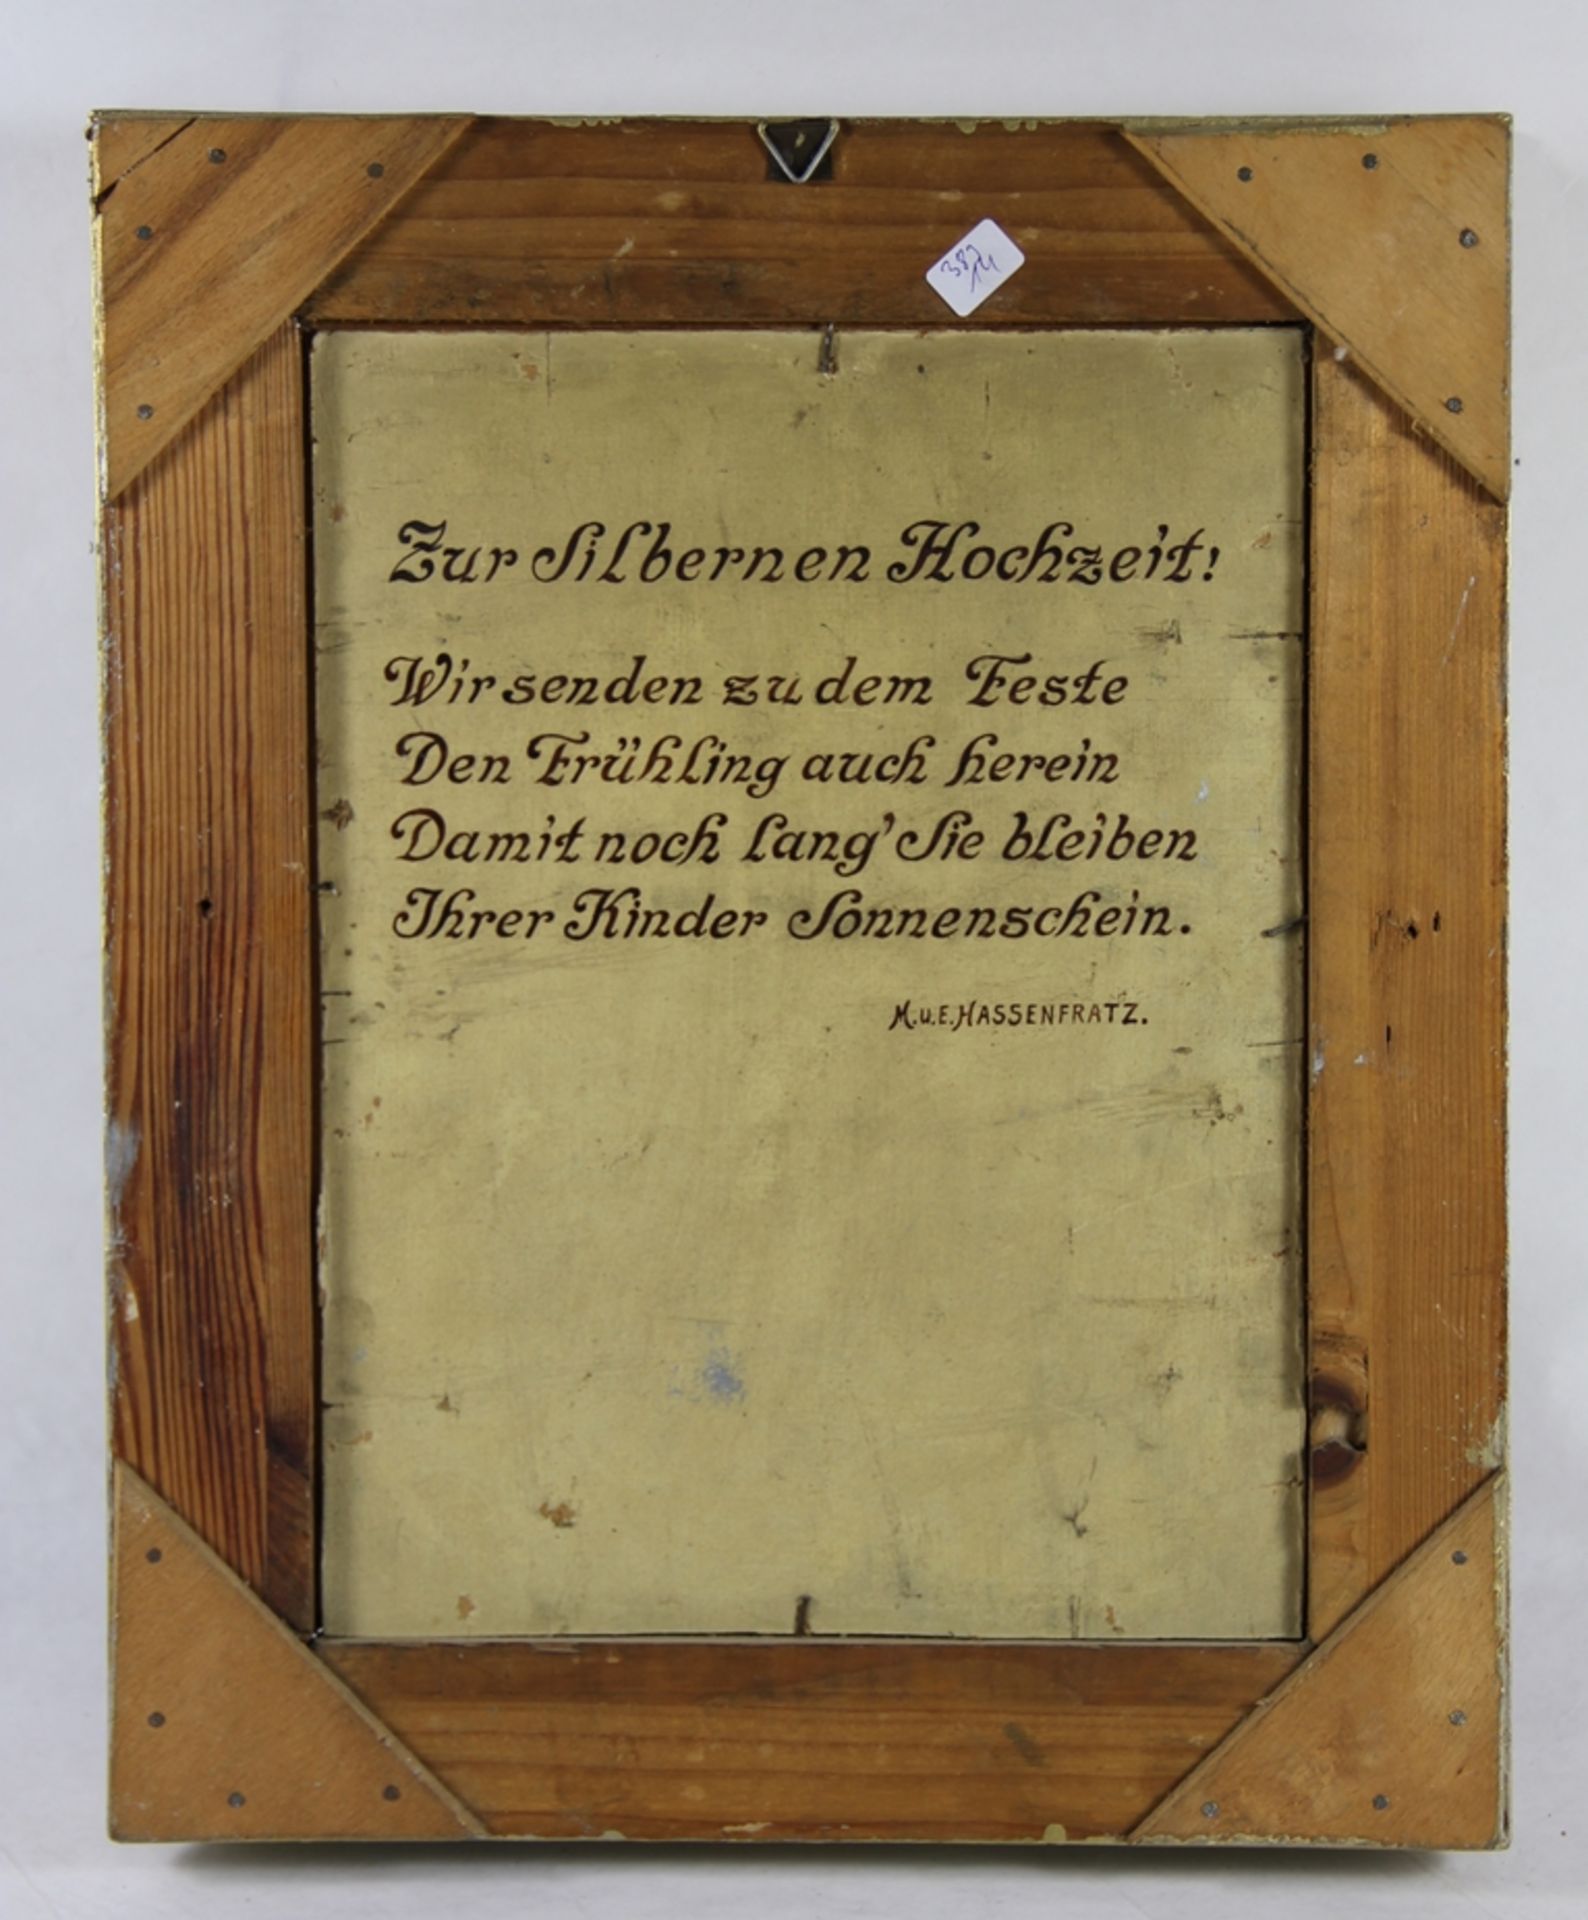 387
14
Zur Silbernen Hochzeit!
Wir senden zu dem Feste
Den Frühling auch herein
Damit noch lang' Sie bleiben
Ihrer Kinder Sonnenschein.
M.u.E. HASSENFRATZ.